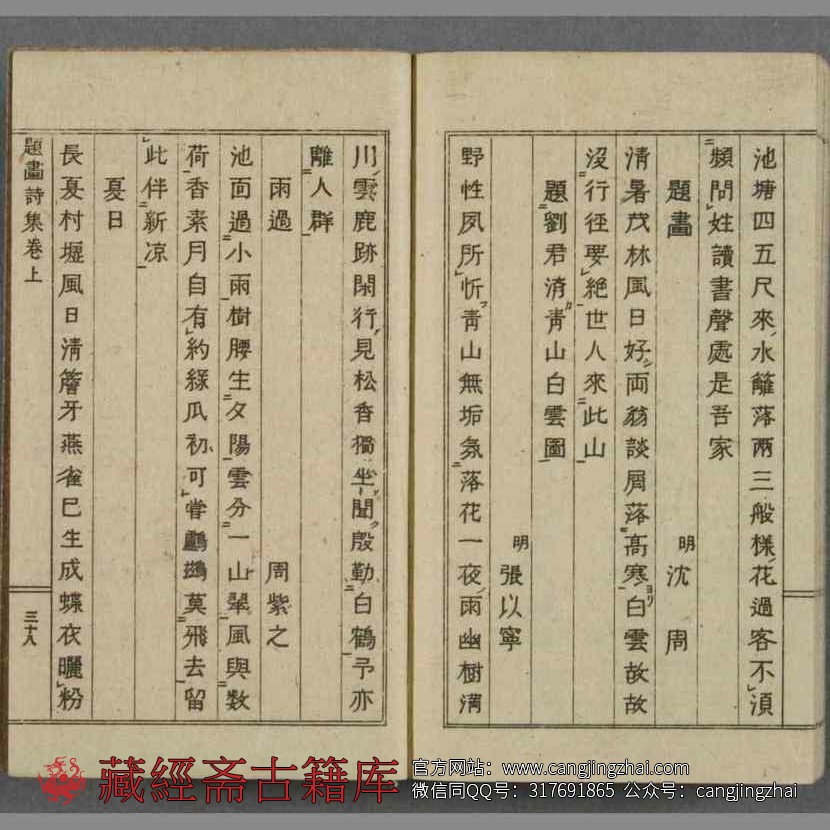 池塘四五尺來水籬落兩三般樣花過客不須
頻問姓讀書聲處是吾家
題畫
明 沈 周
清暑茂林風日好両翁談屑落髙寒白雲故故
沒行徑要絶世人來此山
題劉君済青山白雲圖
明 張以寧
野性夙所忻青山無垢氛落花一夜雨幽樹満
川雲鹿跡閑行見松香獨坐聞殷勤白鶴予亦
離人群
雨過
周紫之
池面過小雨樹腰生夕陽雲分一山翠風與数
荷香素月自有約緑瓜初可嘗鸕鷀莫飛去留
此伴新凉
夏日
長夏村墟風日清簷牙燕雀已生成蝶衣曬粉
題畫詩集卷上
三十八
藏經斋古籍库
官方网站：www.cangjingzhai.com
微信同QQ号：317691865 公众号：cangjingzhai